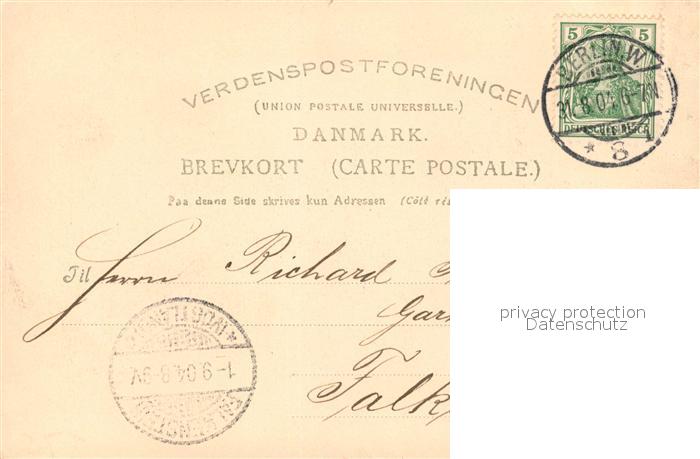 5 5
BERLIN W
31.8.04. 6-7N
DEUTSCHES REICH
* 8
VERDENSPOSTFORENINGEN
(UNION POSTALE UNIVERSELLE.)
DANMARK.
BREVKORT (CARTE POSTALE.)
Paa denne Side skrives kun Adressen (Côté
Til Herrn Richard
Falk
privacy protection
Datenschutz
(VOGTLAND)
1-9.04.8-9V.
FALKENSTEIN